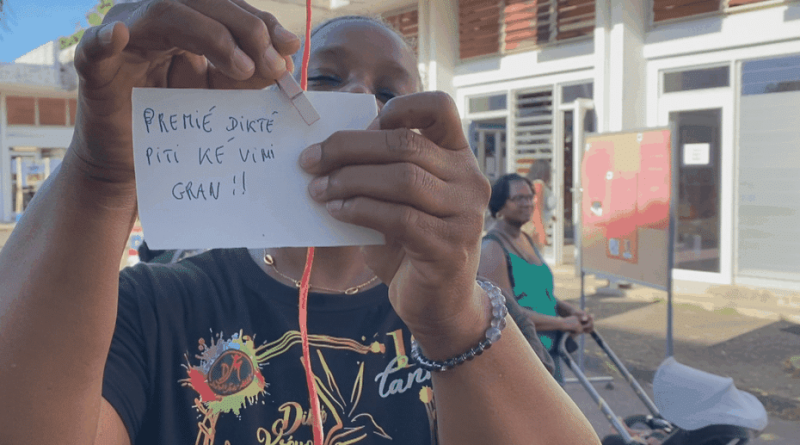 PREMIÉ DIKTÉ
PITI KÉ VINI
GRAN !!
Dikté